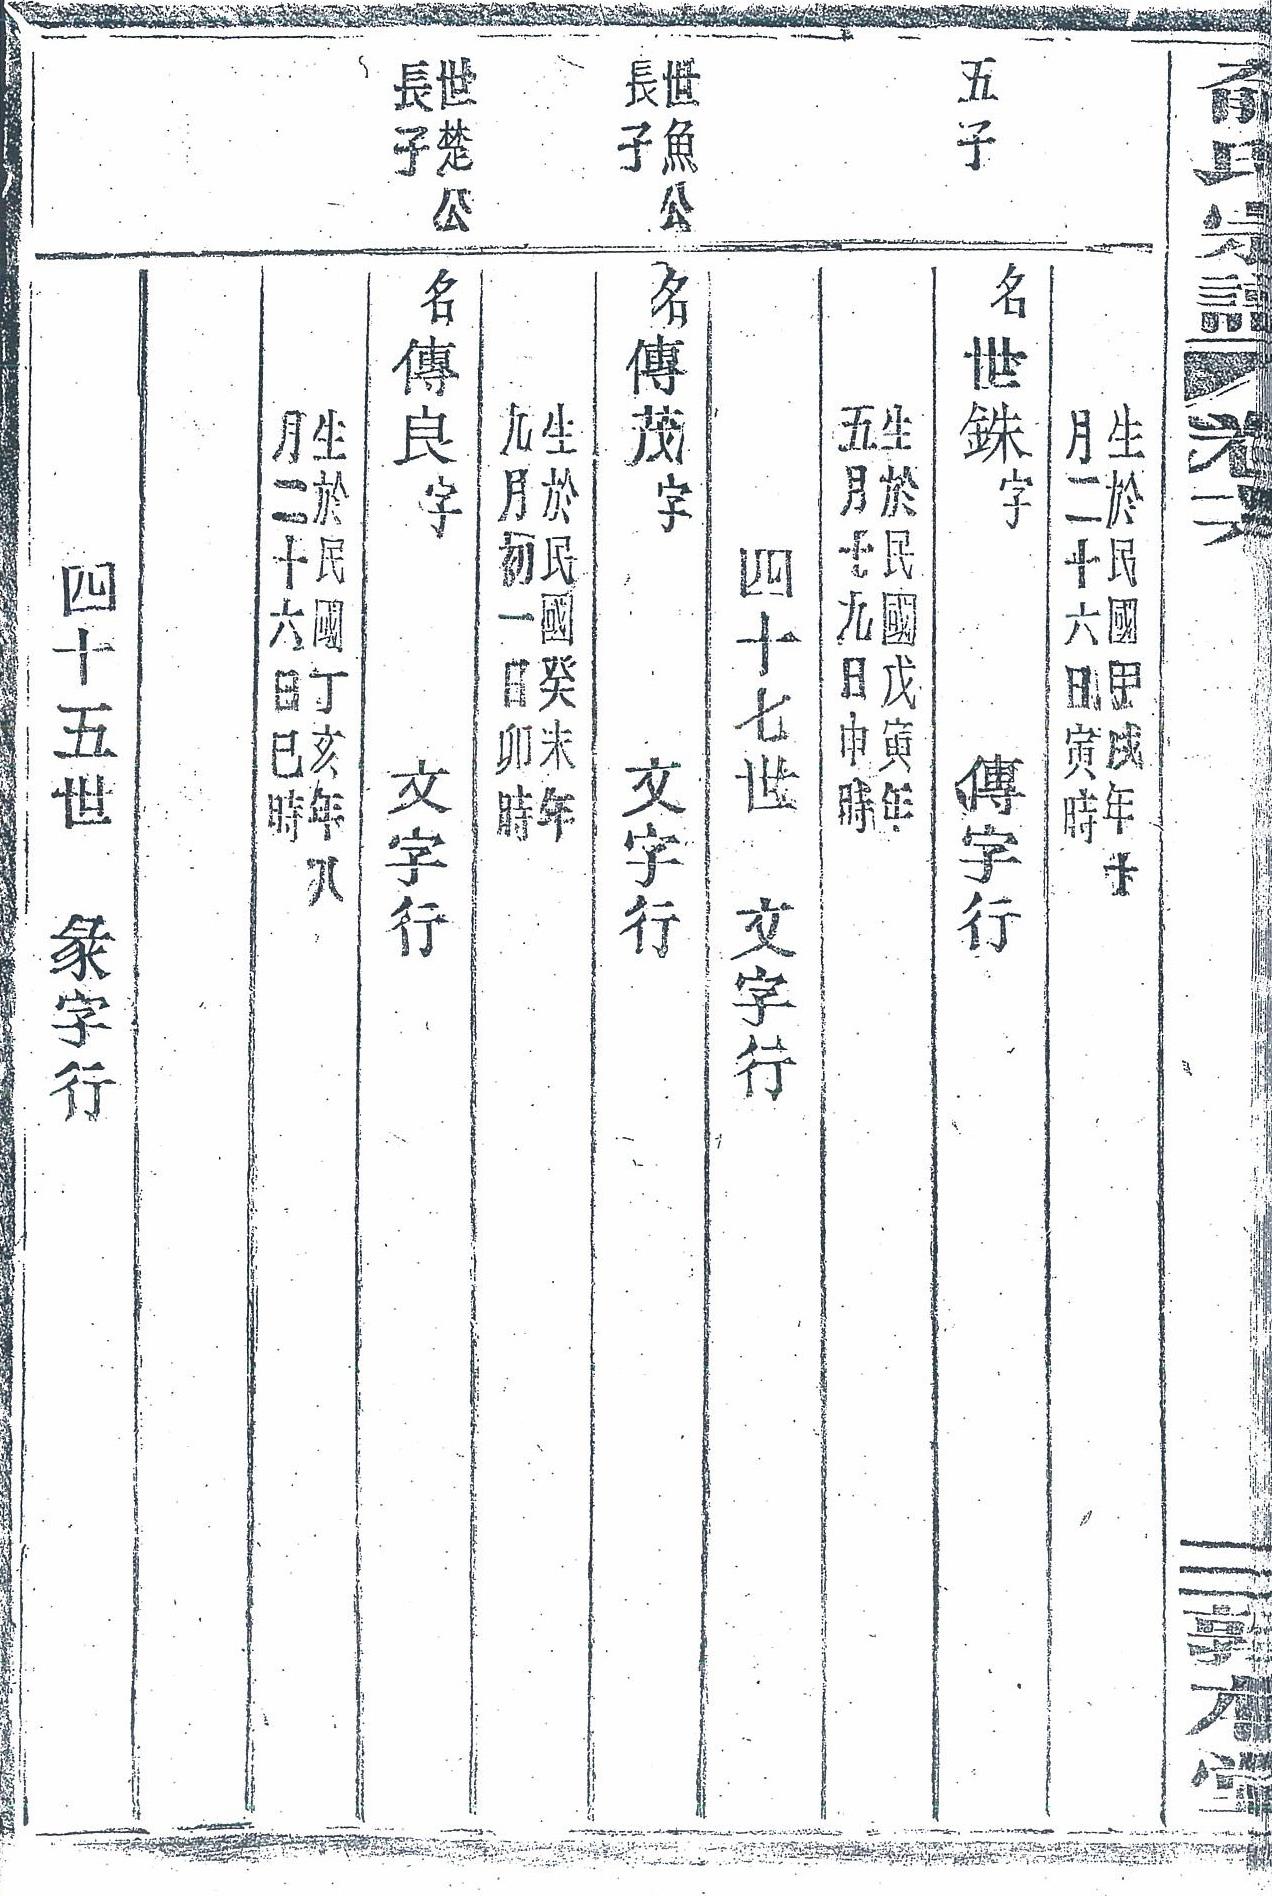 氏宗譜
卷六
敦本堂
生於民國甲戌年十
月二十六日寅時
五子
名世銖字 傳字行
生於民國戊寅年
五月十九日申時
四十七世 文字行
世魚公
長子
名傳茂字 文字行
生於民國癸未年
九月初一日卯時
世楚公
長子
名傳良字 文字行
生於民國丁亥年八
月二十六日巳時
四十五世 彖字行